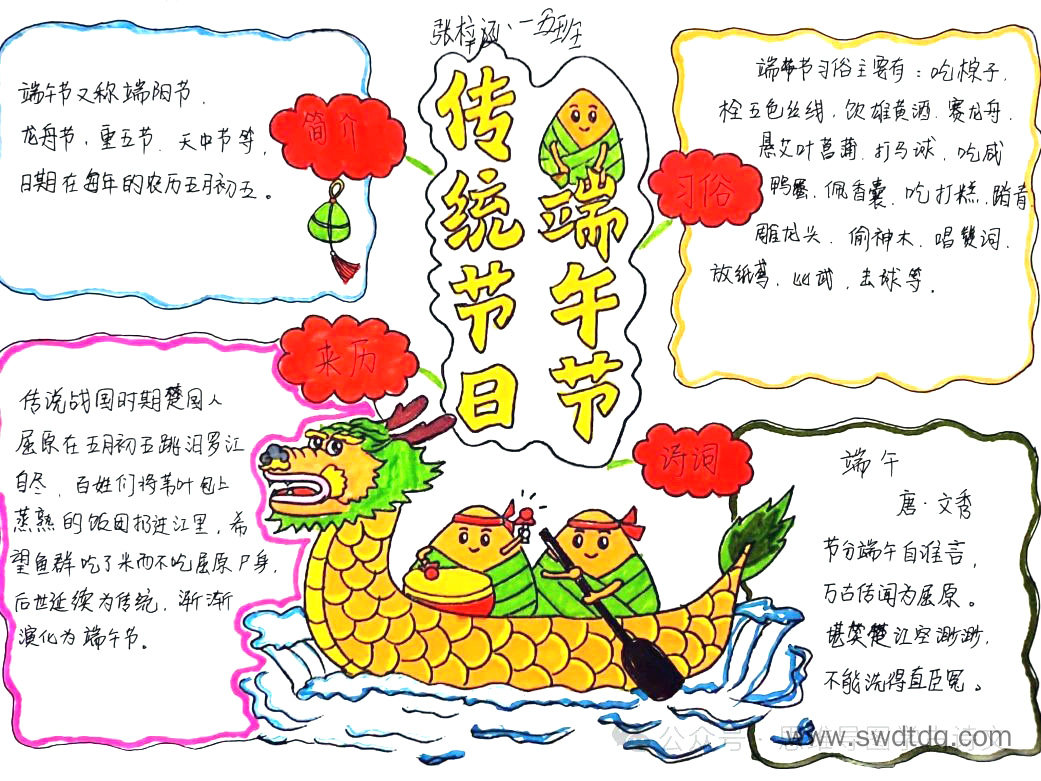 张梓涵、一五班
传统节日
端午节
简介
端午节又称端阳节、
龙舟节,重五节、天中节等,
日期在每年的农历五月初五。
习俗
端午节习俗主要有:吃粽子,
栓五色丝线,饮雄黄酒、赛龙舟、
悬艾叶菖蒲、打马球、吃咸
鸭蛋、佩香囊、吃打糕、踏青
雕龙头、偷神木、唱赞词、
放纸鸢、比武、击球等。
来历
传说战国时期楚国人
屈原在五月初五跳汨罗江
自尽,百姓们将苇叶包上
蒸熟的饭团扔进江里,希
望鱼群吃了米而不吃屈原尸身,
后世延续为传统,渐渐
演化为端午节。
诗词
端午
唐·文秀
节分端午自谁言,
万古传闻为屈原。
堪笑楚江空渺渺,
不能洗得直臣冤。
公众号·思维导图
www.swdtdq.com